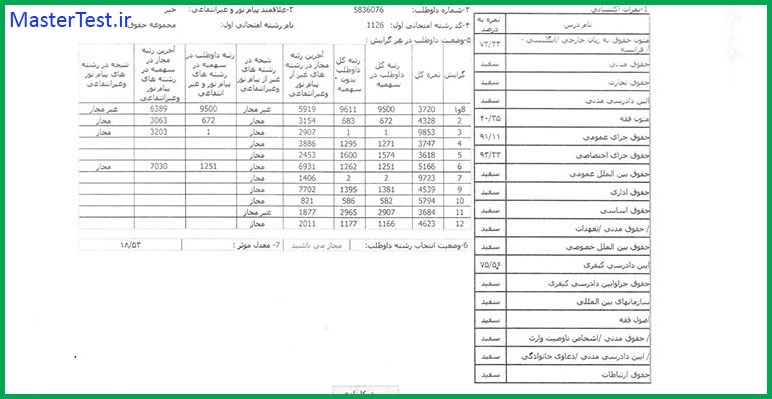 MasterTest.ir
1-نمرات اکتسابی
2-شماره داوطلب: 5836076
3-علاقمند پیام نور و غیرانتفاعی: خیر
4-کد رشته امتحانی اول: 1126
نام رشته امتحانی اول: مجموعه حقوق
5-وضعیت داوطلب در هر گرایش:
نام درس نمره به درصد
متون حقوق به زبان خارجی /انگلیسی - / فرانسه ۷۳/۳۳
حقوق مدنی سفید
حقوق تجارت سفید
آئین دادرسی مدنی سفید
متون فقه ۴۰/۳۵
حقوق جزای عمومی ۹۱/۱۱
حقوق جزای اختصاصی ۹۳/۳۳
حقوق بین الملل عمومی سفید
حقوق اداری سفید
حقوق اساسی سفید
/ حقوق مدنی /تعهدات سفید
حقوق بین الملل خصوصی سفید
آیین دادرسی کیفری ۷۵/۵۶
حقوق جزاوآیین دادرسی کیفری سفید
سازمانهای بین المللی سفید
اصول فقه سفید
/ حقوق مدنی /اشخاص تاوصیت وارث سفید
/ آیین دادرسی مدنی /دعاوی خانوادگی سفید
حقوق ارتباطات سفید
گرایش
نمره کل
رتبه کل داوطلب در سهمیه
رتبه کل داوطلب بدون سهمیه
آخرین رتبه مجاز در رشته های غیر از پیام نور وغیرانتفاعی
نتیجه در رشته های غیر از پیام نور وغیرانتفاعی
رتبه داوطلب در سهمیه در رشته های پیام نور و غیر انتفاعی
آخرین رتبه مجاز در سهمیه در رشته های پیام نور وغیرانتفاعی
نتیجه در رشته های پیام نور وغیرانتفاعی
1و8 3720 9500 9611 5919 غیر مجاز 9500 6389 غیر مجاز
2 4328 672 683 3154 مجاز 672 3063 مجاز
3 9853 1 1 2907 مجاز 1 3203 مجاز
4 3747 1271 1295 3886 مجاز
5 3618 1574 1600 2453 مجاز
6 5166 1251 1262 6931 مجاز 1251 7030 مجاز
7 9723 2 2 1406 مجاز
9 4539 1381 1395 7702 مجاز
10 5794 582 586 821 مجاز
11 3684 2907 2965 1877 غیر مجاز
12 4623 1166 1177 2011 مجاز
6-وضعیت انتخاب رشته داوطلب: مجاز می باشید
7- معدل موثر: ۱۸/۵۳